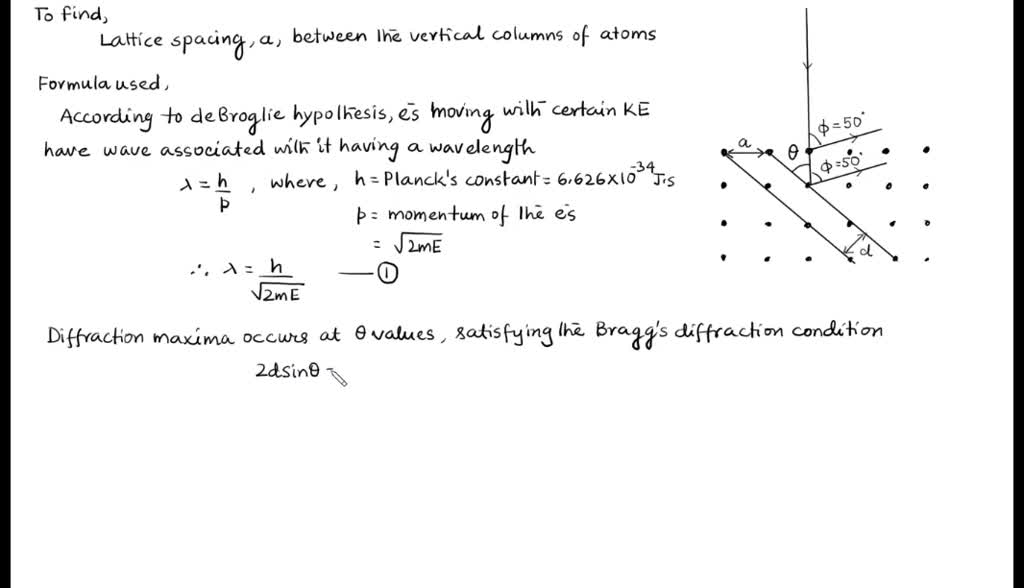 To find,
Lattice spacing, a, between the vertical columns of atoms
Formula used,
According to de Broglie hypothesis, ēs moving with certain KE
have wave associated with it having a wavelength
λ = h/p , where, h = Planck's constant = 6.626×10^-34 J.s
p = momentum of the ēs
= √2mE
∴ λ = h/√2mE —— ①
Diffraction maxima occurs at θ values, satisfying the Bragg's diffraction condition
2dsinθ =
ϕ=50°
a
θ
ϕ=50°
d